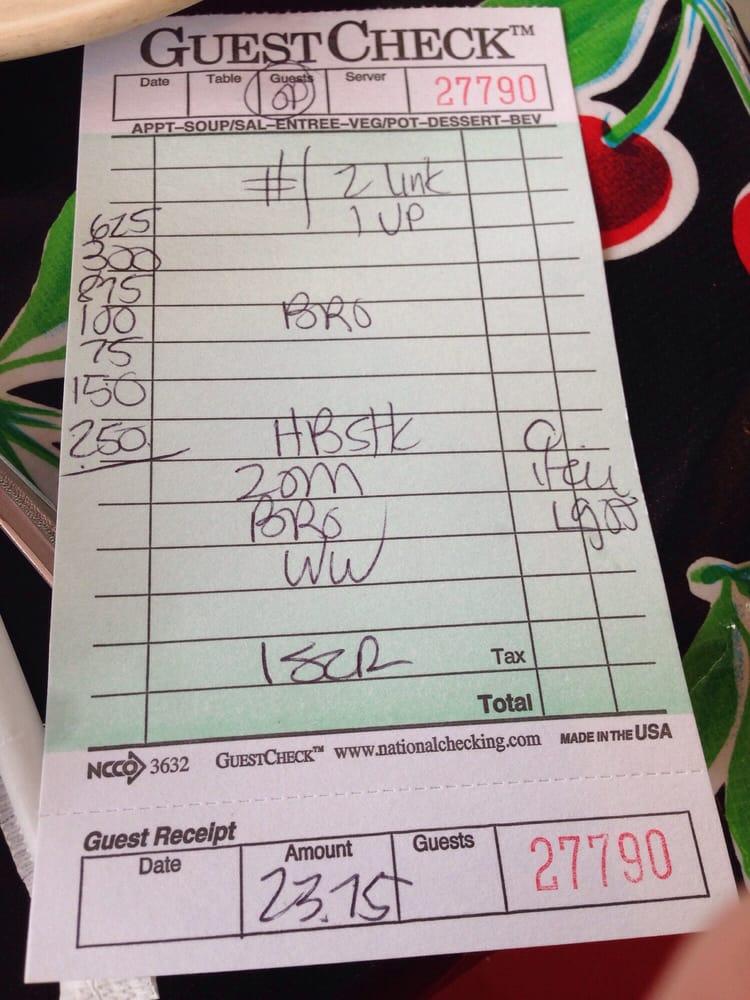 GUESTCHECK™
Date Table Guests Server 27790
APPT–SOUP/SAL–ENTREE–VEG/POT–DESSERT–BEV
#1 2 link
625 1 UP
300
875
100 BRO
75
150
250 HBStk
2 OM
BRO
WW
1 SCR Tax
Total
NCCO 3632 GUESTCHECK™ www.nationalchecking.com MADE IN THE USA
Guest Receipt
Date Amount Guests 27790
23.75